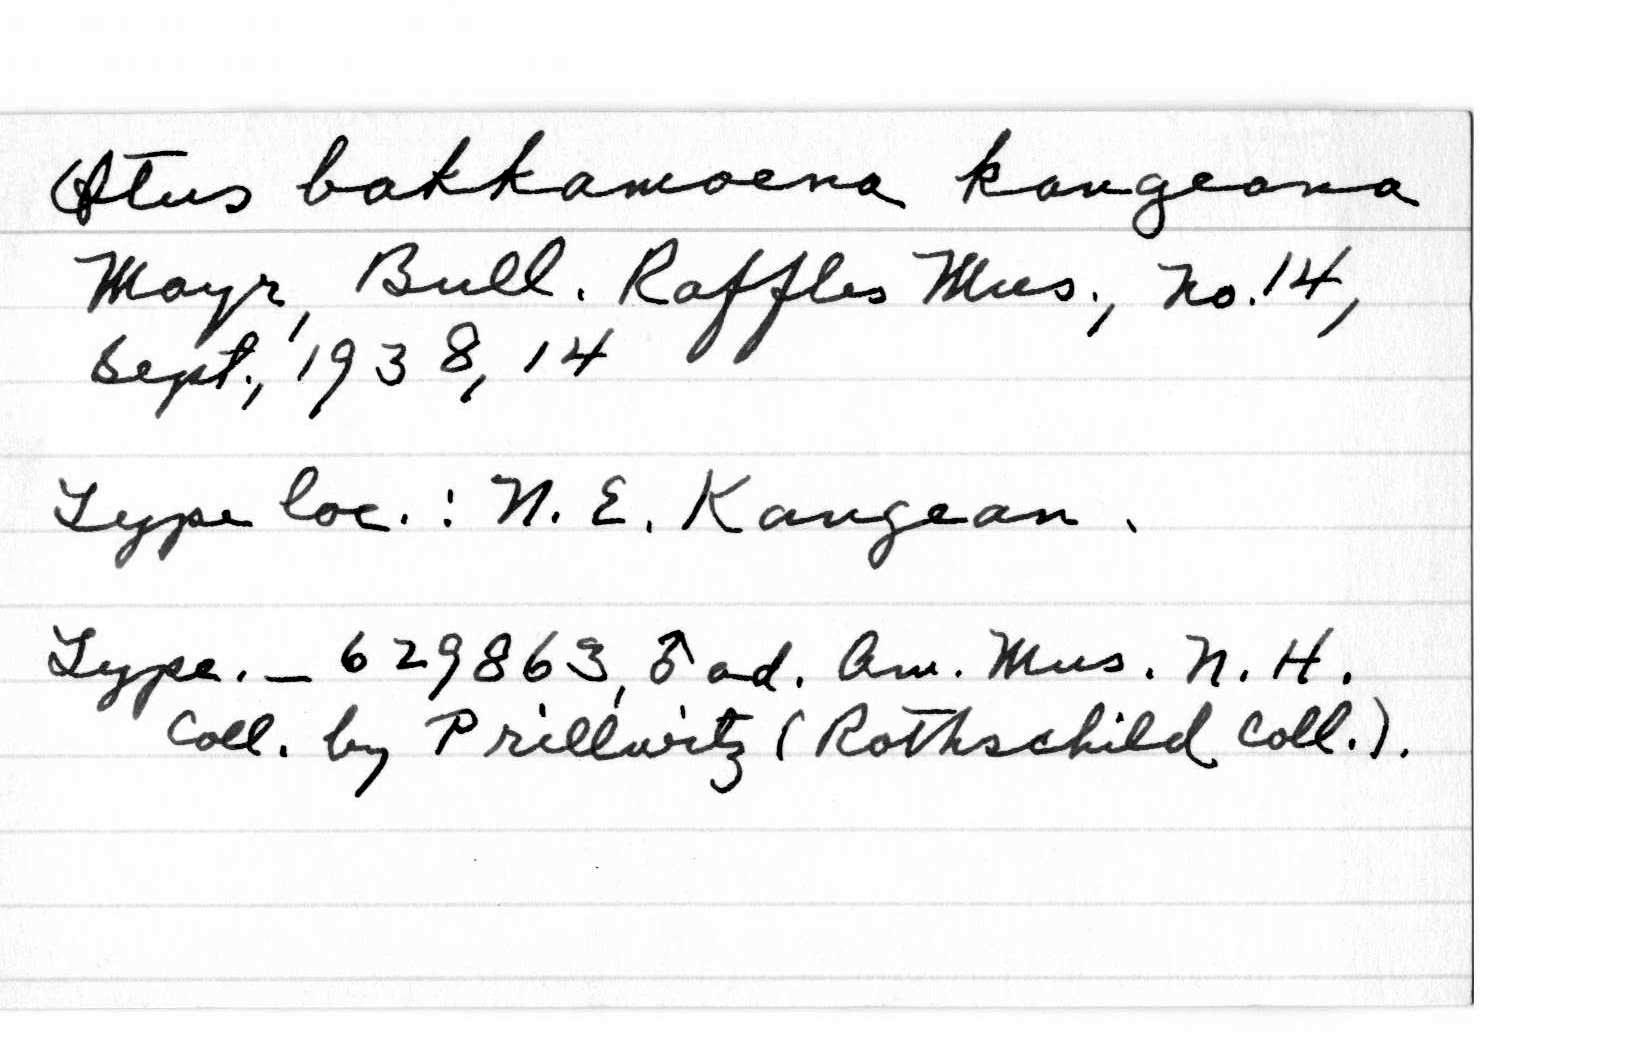 Otus bakkamoena kangeana
Mayr, Bull. Raffles Mus., no. 14,
Sept., 1938, 14
Type loc. : N. E. Kangean.
Type. – 629863, ♂ ad. Am. Mus. N. H.
Coll. by Prillwitz (Rothschild Coll.).